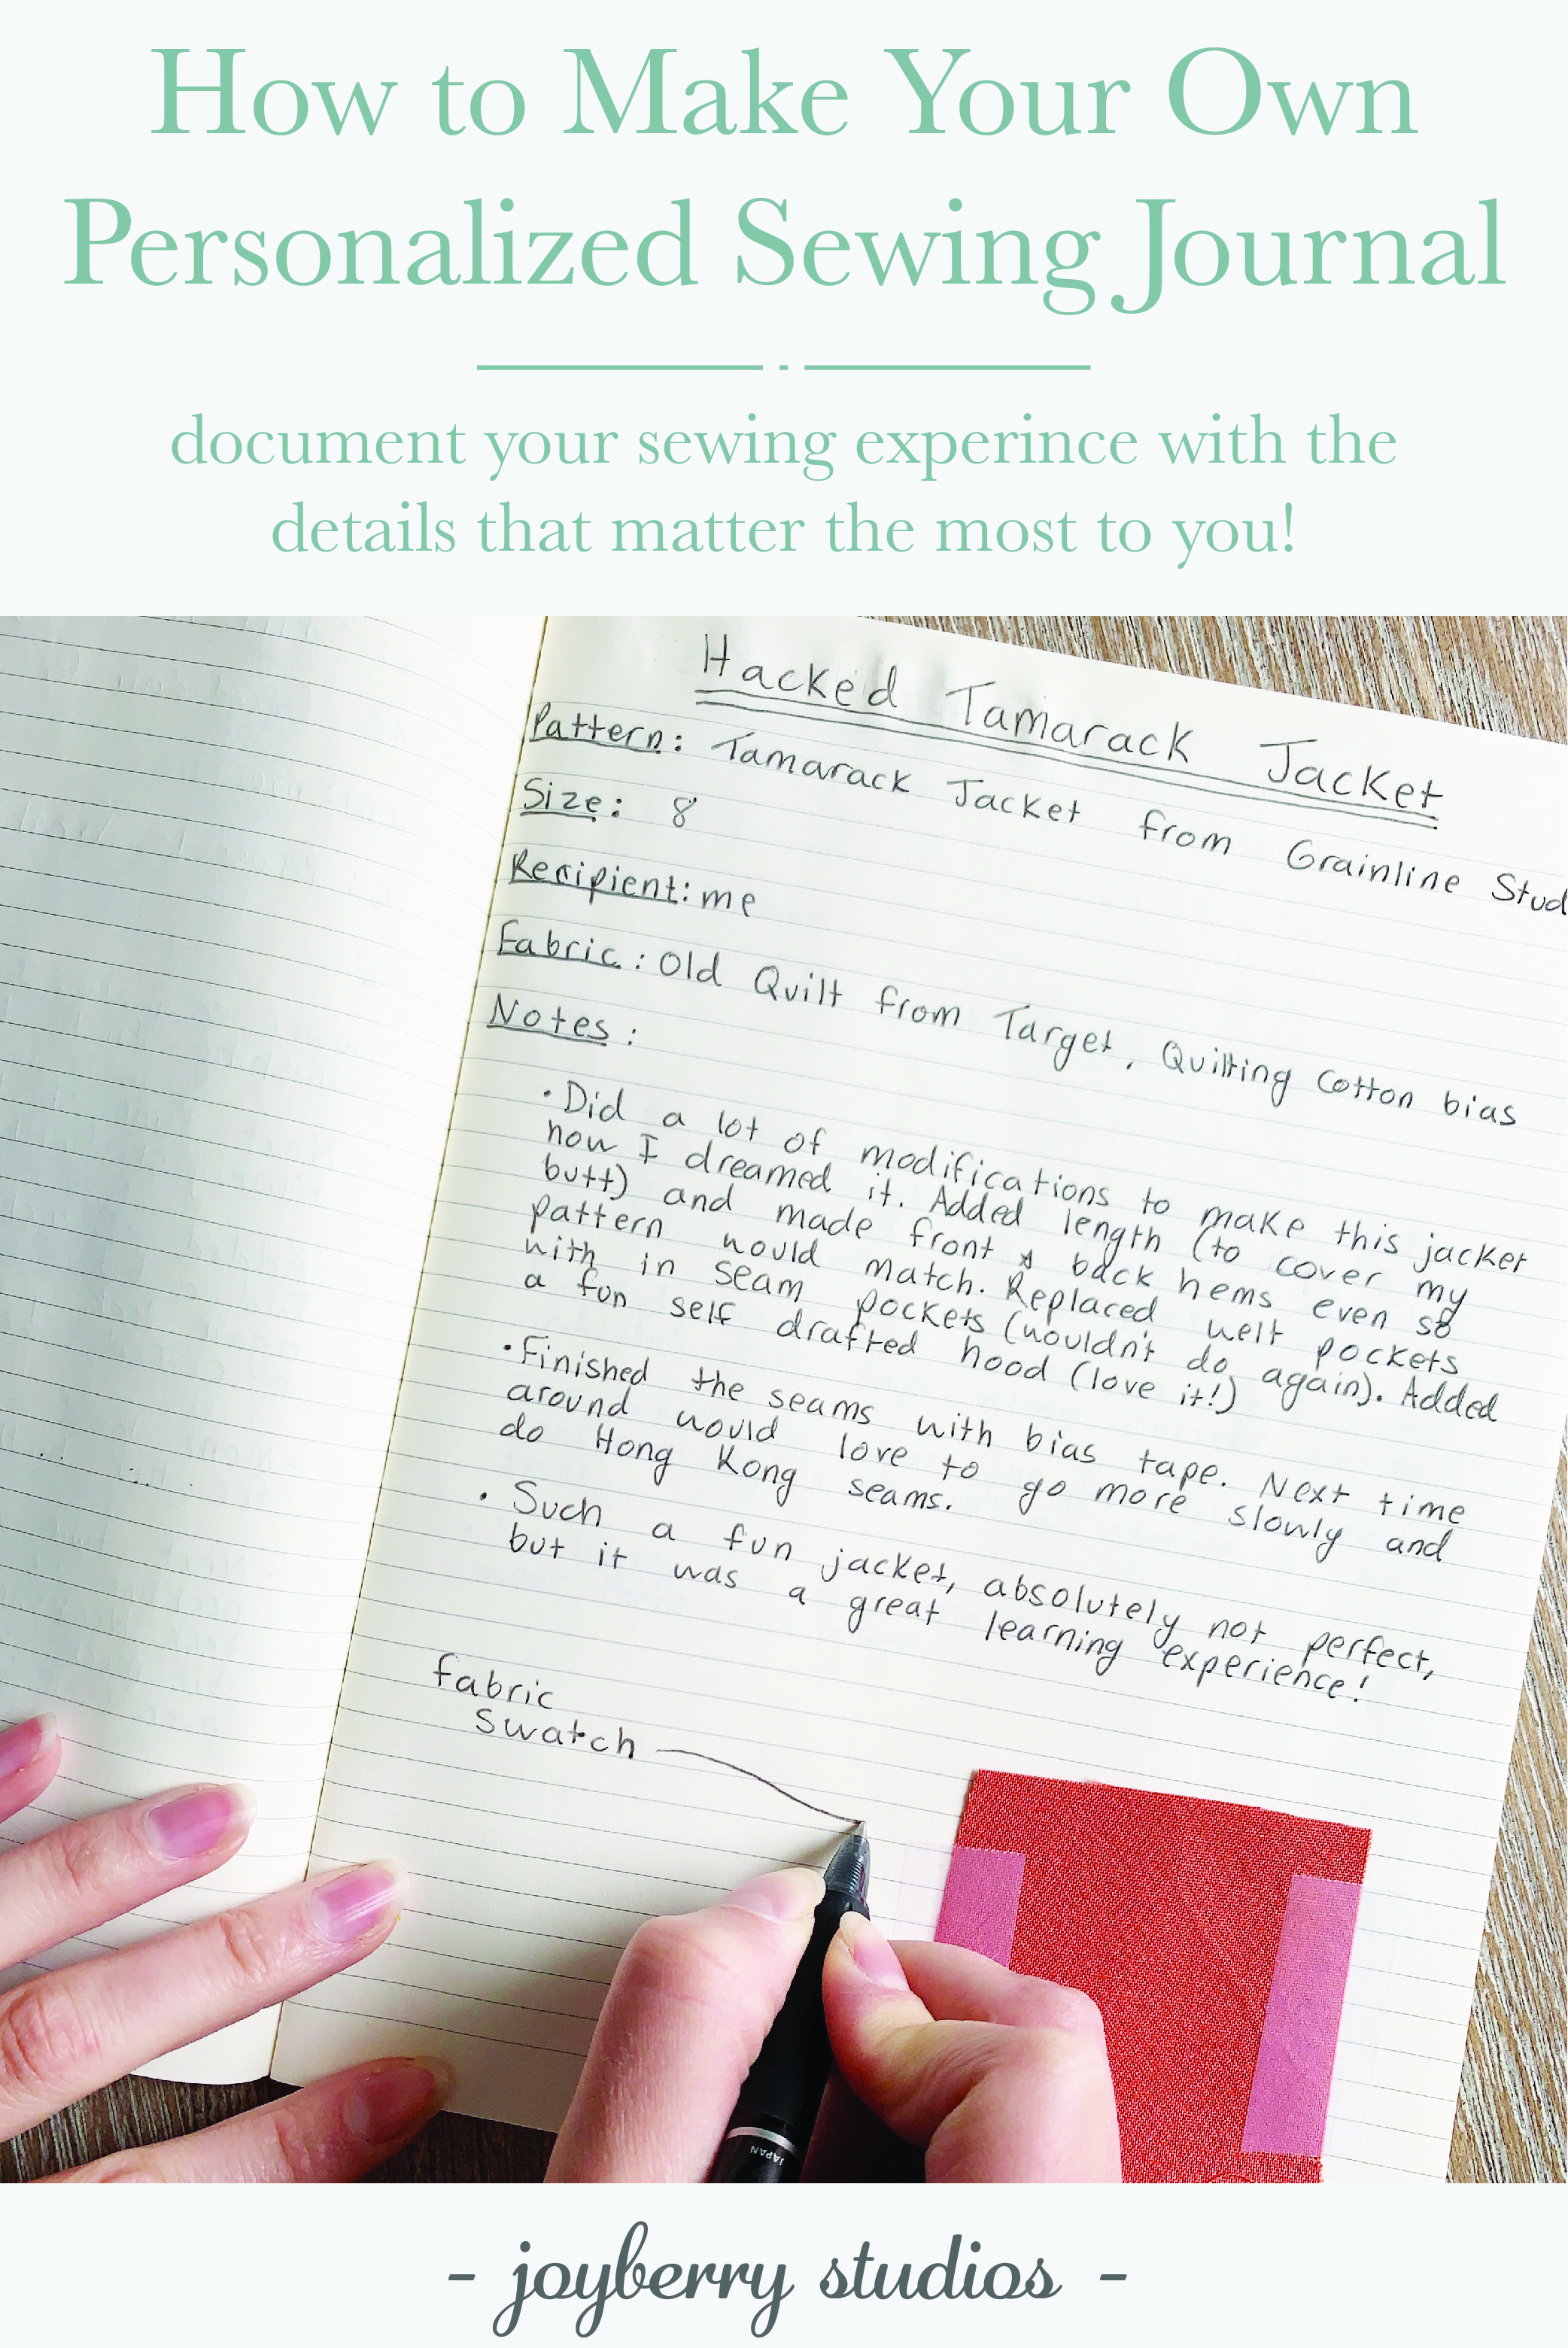 How to Make Your Own
Personalized Sewing Journal
document your sewing experince with the
details that matter the most to you!
Hacked Tamarack Jacket
Pattern: Tamarack Jacket from Grainline Stud
Size: 8
Recipient: me
Fabric: Old Quilt from Target, Quilting Cotton bias
Notes:
• Did a lot of modifications to make this jacket
how I dreamed it. Added length (to cover my
butt) and made front & back hems even so
pattern would match. Replaced welt pockets
with in seam pockets (wouldn't do again). Added
a fun self drafted hood (love it!)
• Finished the seams with bias tape. Next time
around would love to go more slowly and
do Hong Kong seams.
• Such a fun jacket, absolutely not perfect,
but it was a great learning experience!
fabric
swatch
JAPAN
- joyberry studios -